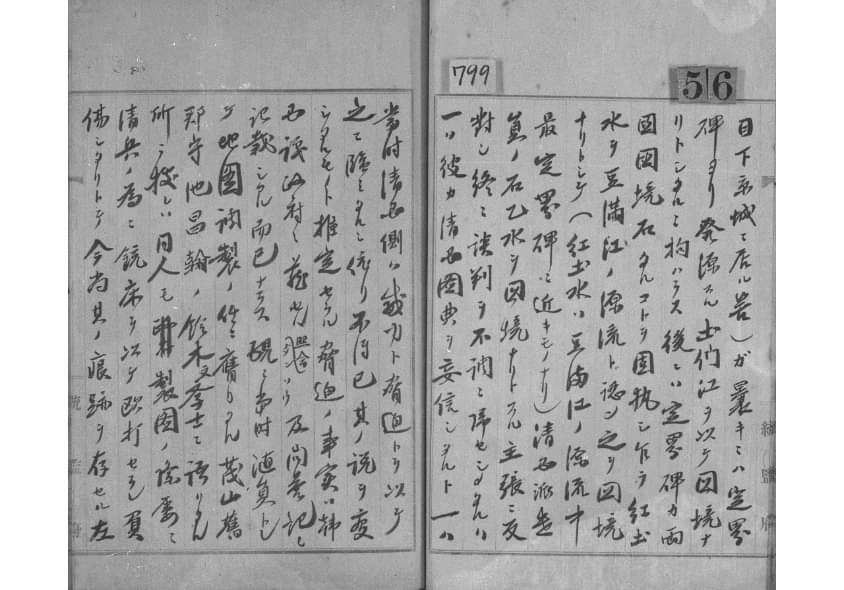 799
516
目下京城ニ居ル者)ガ曩キニハ定界
碑ヨリ発源スル土們江ヲ以テ国境ナ
リトシタルニ拘ハラス後ニハ定界碑カ両
国国境石タルコトヲ固執シ乍ラ紅土
水ヲ豆満江ノ源流ト認メ之ヲ国境
ナリトシテ(紅土水ハ豆満江ノ源流中
最定界碑ニ近キモノナリ)清国派遣
員ノ石乙水ヲ国境ナリトスル主張ニ反
対シ終ニ談判ヲ不調ニ帰セシメタルハ
一ハ彼カ清国図典ヲ妄信シタルト一ハ
当時清国側ハ威力ト脅迫トヲ以テ
之ニ臨ミタルニ依リ不得已其ノ説ヲ変
シタルモノト推定セラル脅迫ノ事実ハ韓
国議政府ニ蔵セル 及問答記ニ
記載シアル而已ナラス現ニ当時随員トシ
テ地図調製ノ任ニ膺リタル茂山旧
郡守池昌翰ノ鈴木文学士ニ語リタル
所ニ拠レハ同人モ製図ノ際屡々
清兵ノ為ニ銃床ヲ以テ殴打セラレ負
傷シタリトテ今尚其ノ痕跡ヲ存セル左
統監府